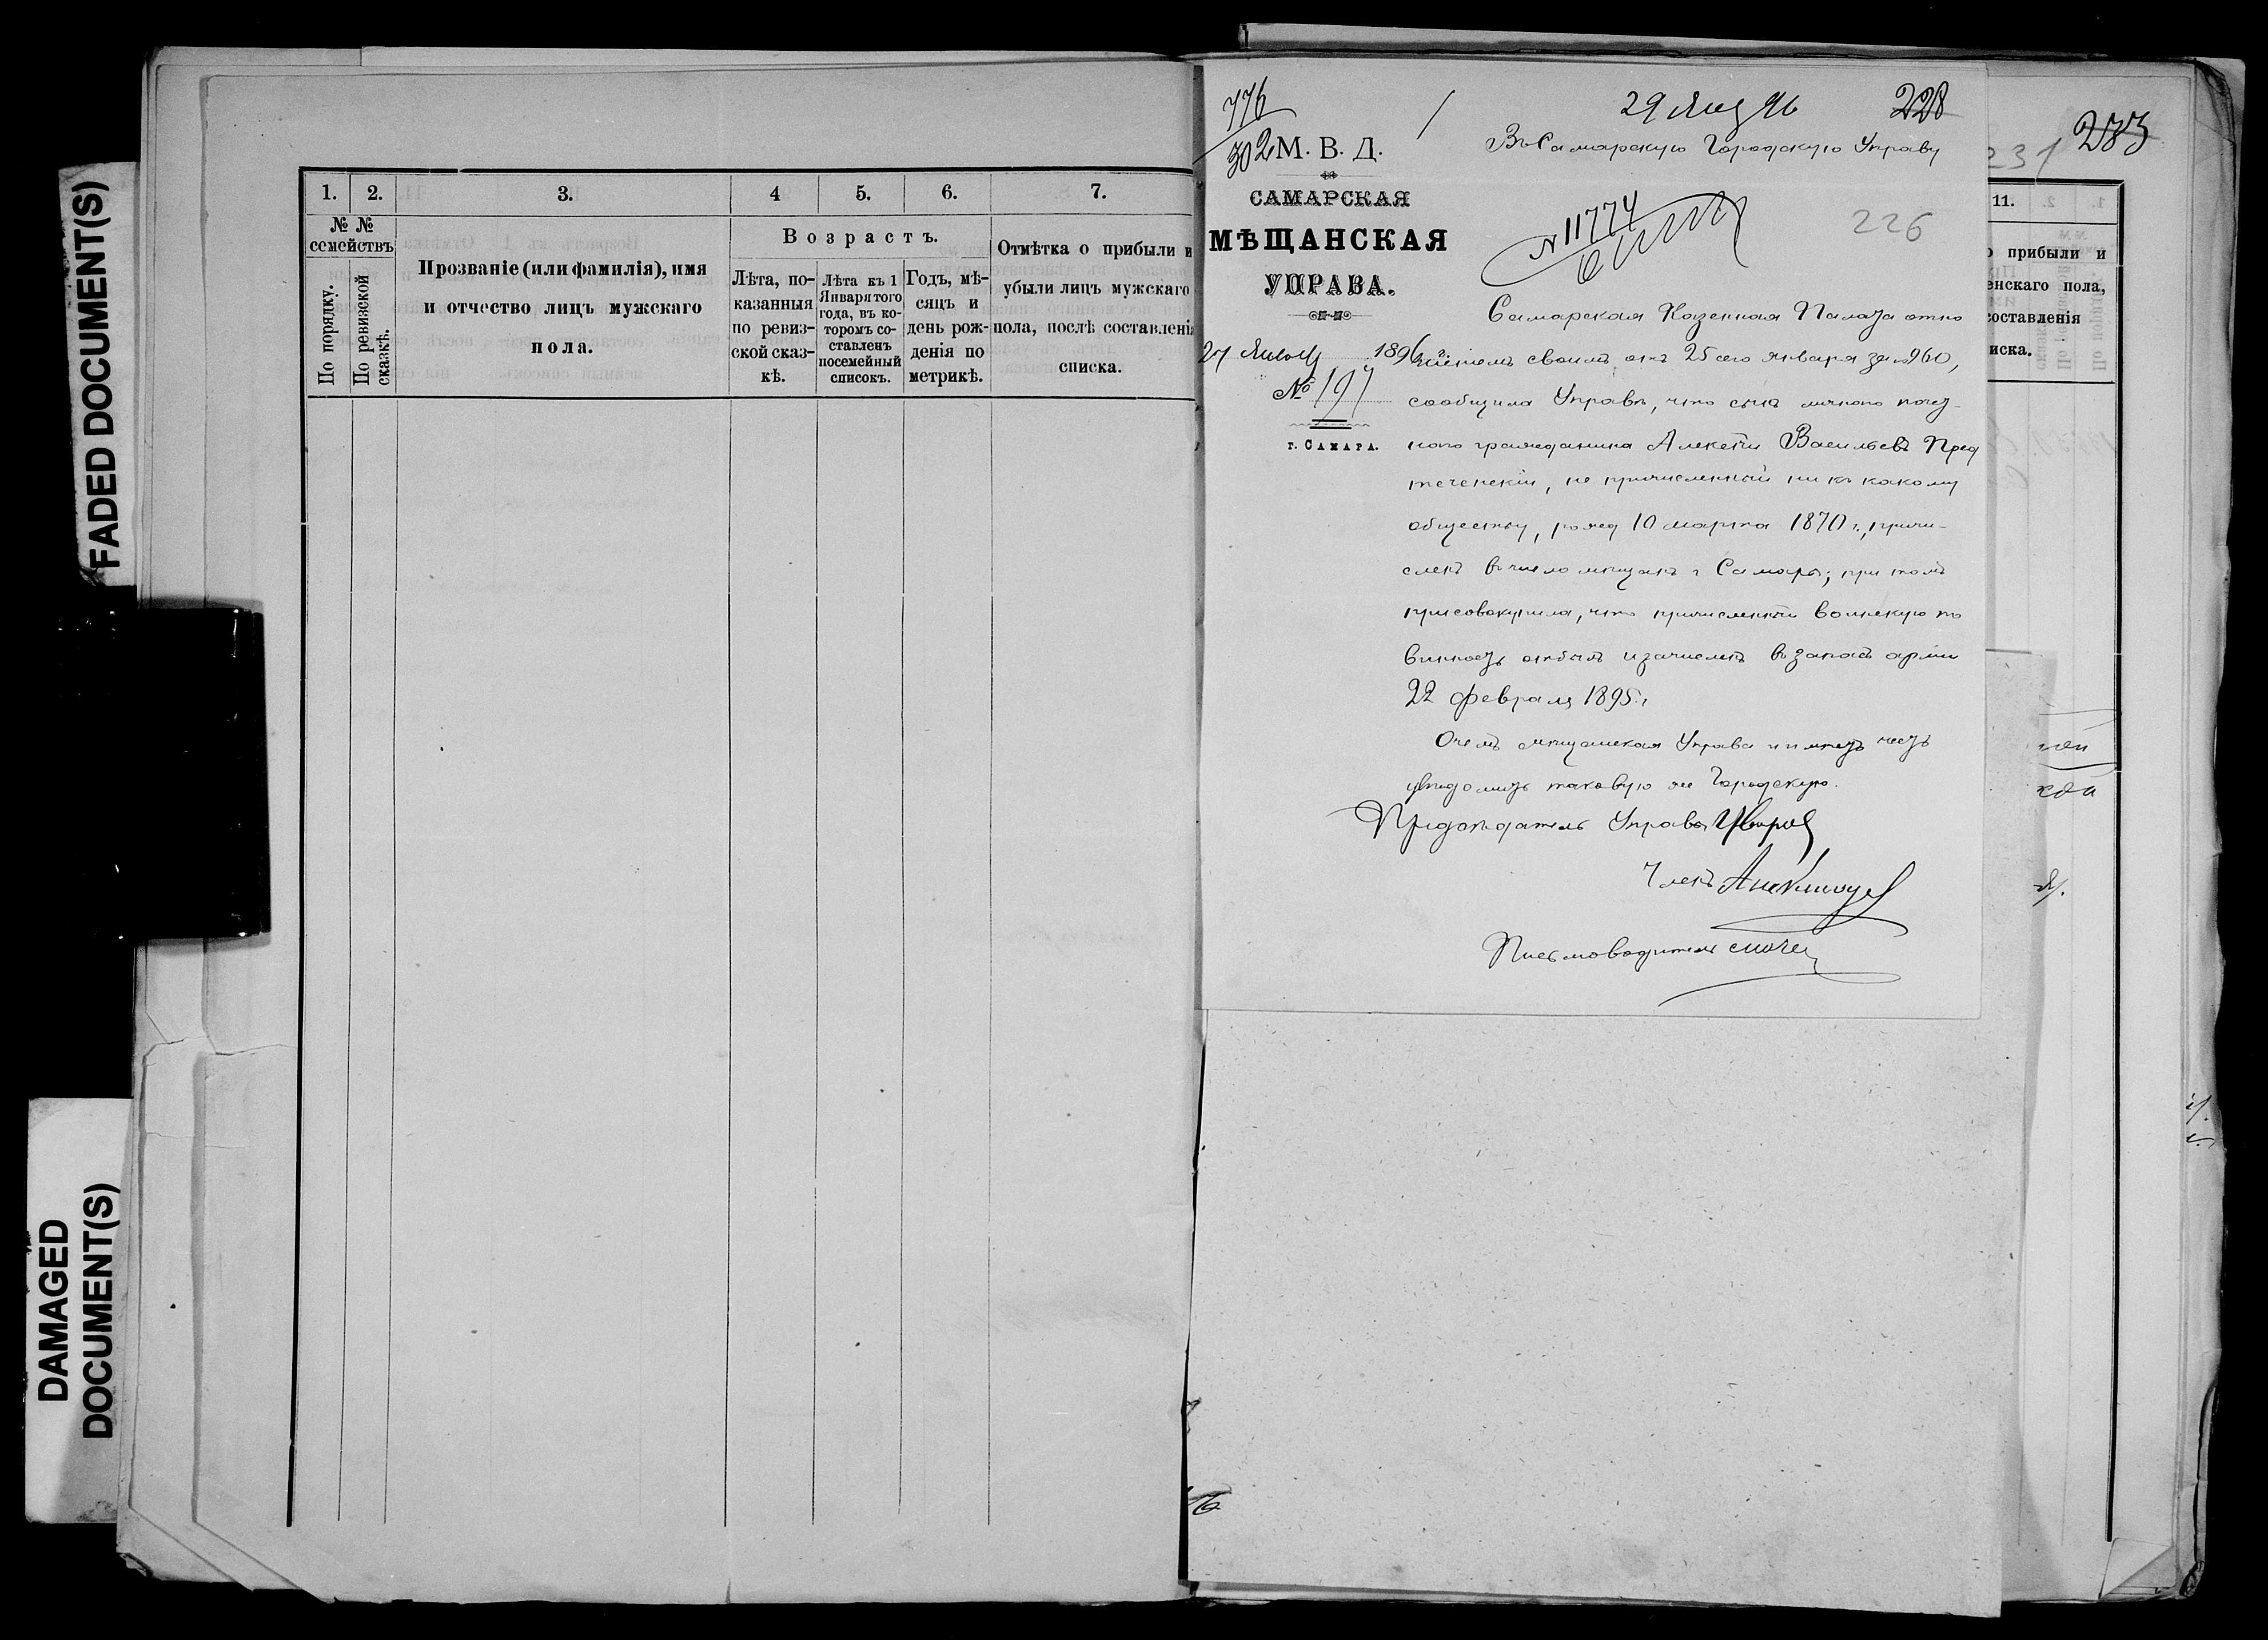 FADED DOCUMENT(S)
DAMAGED
DOCUMENT(S)
1. 2. 3. 4 5. 6. 7.
№ №
семействъ
По порядку.
По ревизской
сказкѣ.
Прозваніе (или фамилія), имя
и отчество лицъ мужскаго
пола.
Возрастъ.
Лѣта, по-
казанныя
по ревиз-
ской сказ-
кѣ.
Лѣта къ 1
Января того
года, въ ко-
торомъ со-
ставленъ
посемейный
списокъ.
Годъ, мѣ-
сяцъ и
день рож-
денія по
метрикѣ.
Отмѣтка о прибыли и
убыли лицъ мужскаго
пола, послѣ составленія
списка.
776
302
М. В. Д.
САМАРСКАЯ
МѢЩАНСКАЯ
УПРАВА.
27 Янв 1896 г.
№ 197
г. САМАРА.
29 Янв 96
228
Въ Самарскую Городскую Управу
№ 11774
226
Самарская Казенная Палата отно
шеніемъ своимъ отъ 25 сего января за № 960,
сообщила Управѣ, что сынъ личнаго почет
наго гражданина Алексѣй Васильевъ Пред
теченскій, не причисленный ни къ какому
обществу, рожд 10 марта 1870 г., причи-
сленъ въ число мѣщанъ г Самары; при томъ
присовокупила, что причисленный воинскую по
винность отбылъ и зачисленъ въ запасъ арміи
22 февраля 1895 г,
О чемъ мѣщанская Управа и имѣетъ честь
увѣдомить таковую же Городскую.
Предсѣдатель Управы
Членъ
Письмоводитель
231
233
11.
прибыли и
енскаго пола,
составленія
иска.